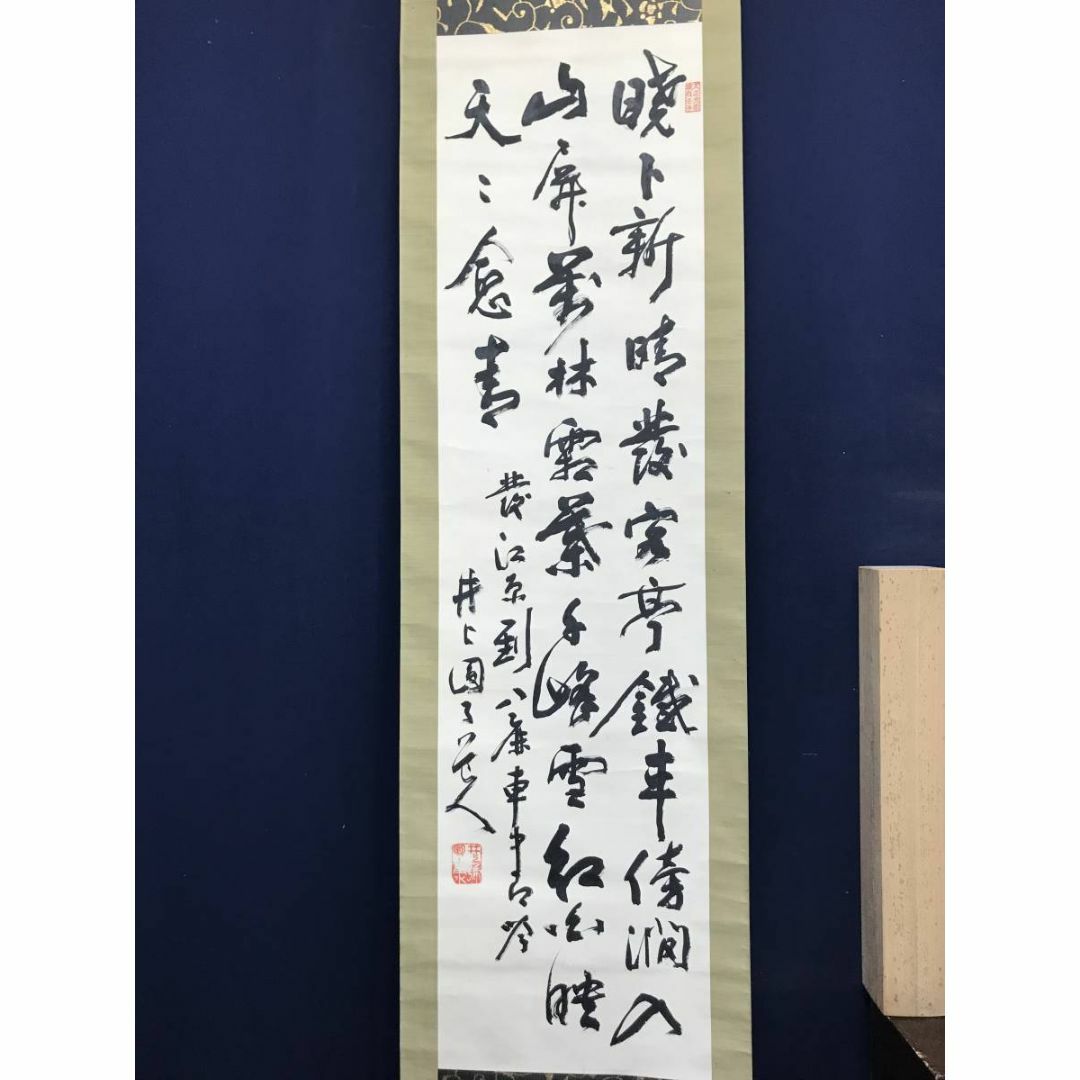 曉卜新晴發客亭鐵車傍澗入
山屏萬林霜葉千峰雪紅白映
天〻愈青
發江原到八鹿車中即吟
井上圓了道人